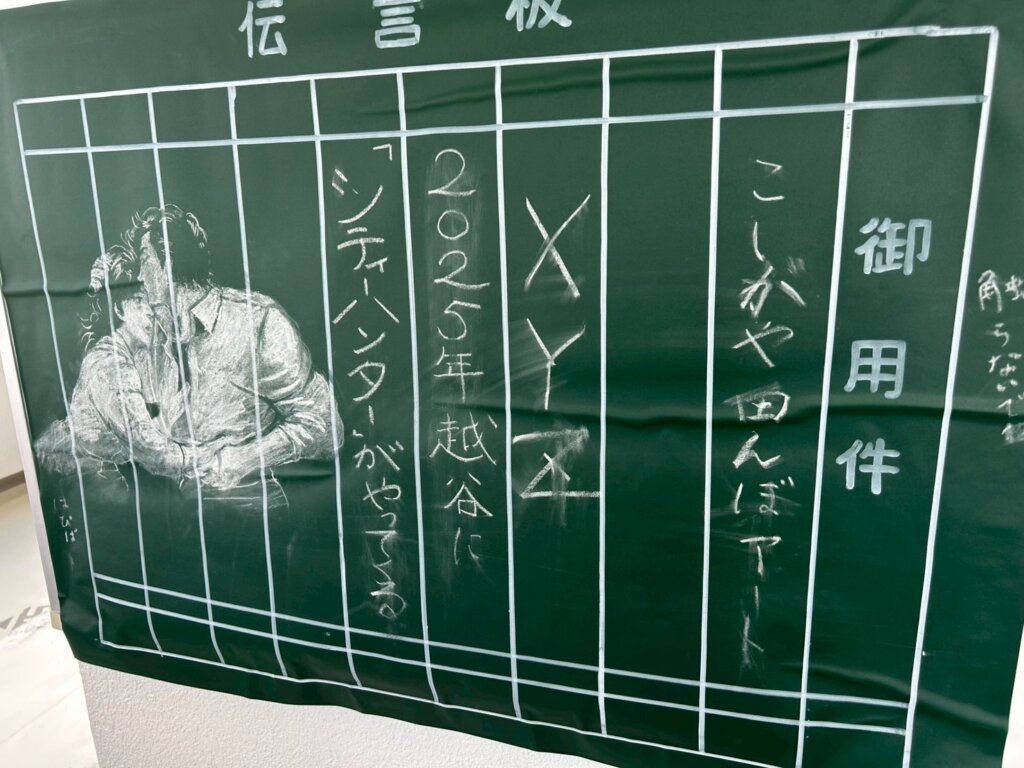 伝言板
御用件
こしがや田んぼアート
XYZ
2025年越谷に
「シティーハンター」がやってくる